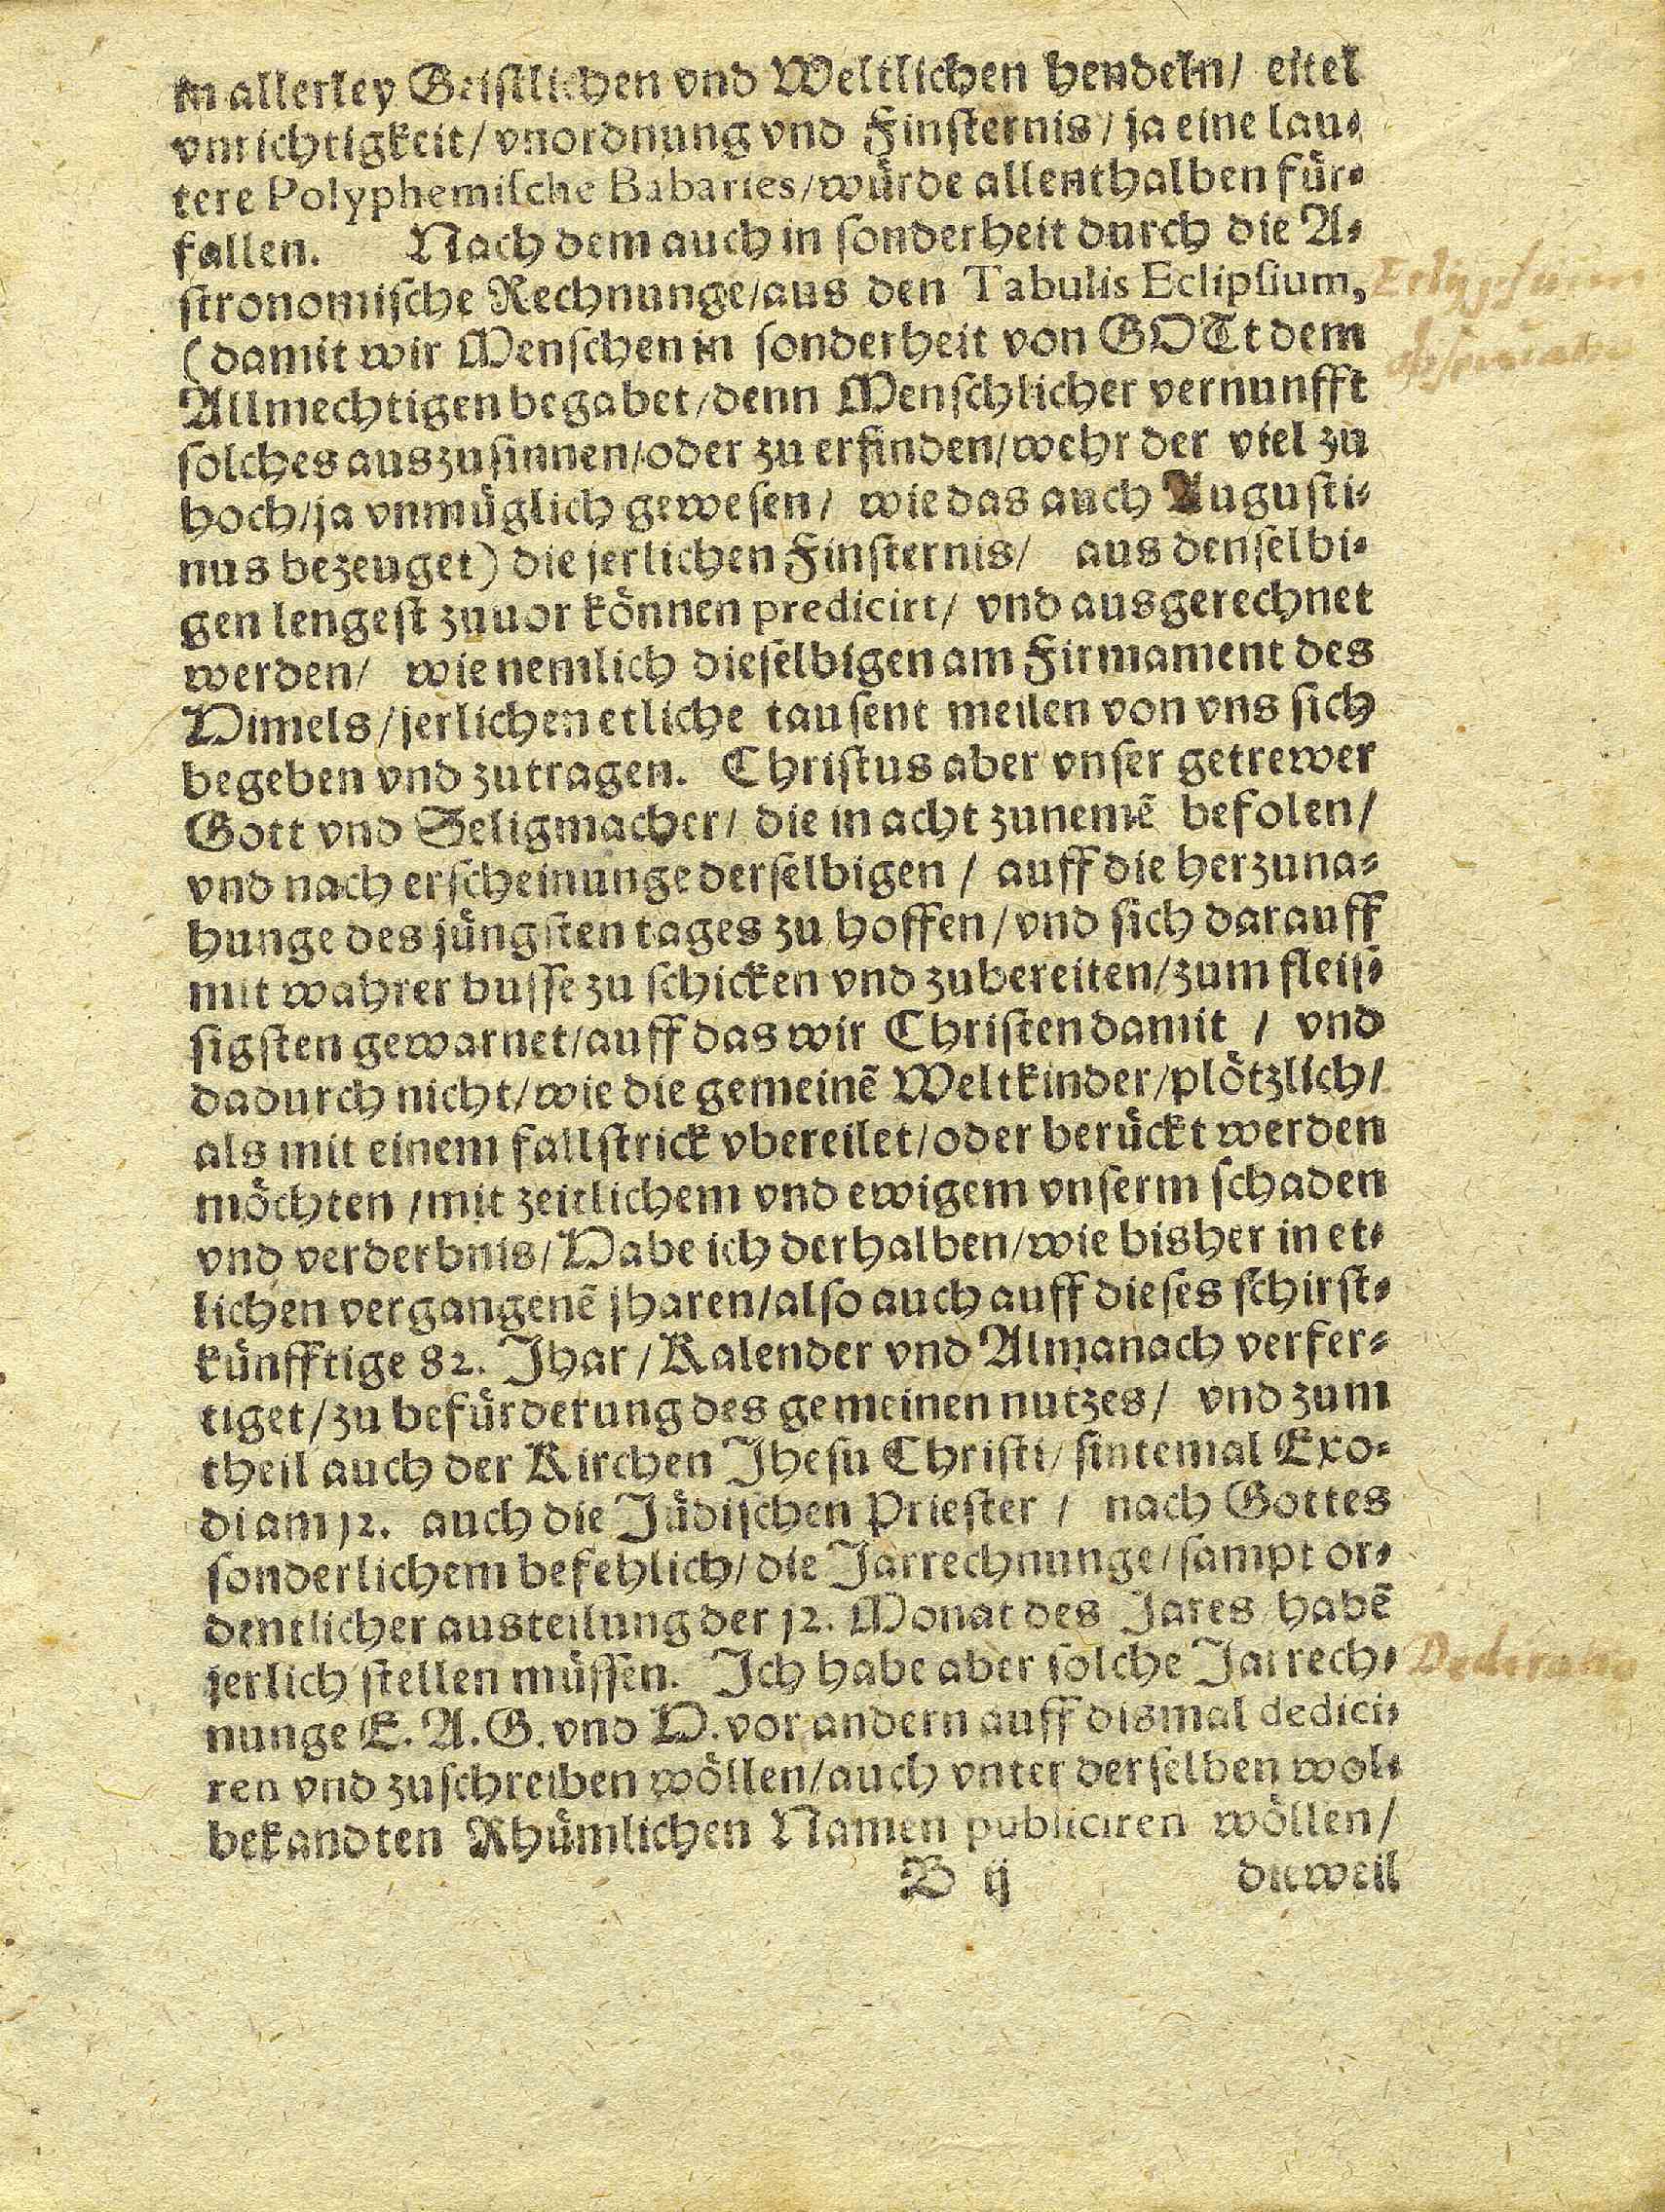 in allerley Geistlichen vnd Weltlichen hendeln/ eitel
vnrichtigkeit/ vnordnung vnd Finsternis/ ja eine lau⸗
tere Polyphemische Babaries/ würde allenthalben für⸗
fallen. Nach dem auch in sonderheit durch die A⸗
stronomische Rechnunge/ aus den Tabulis Eclipsium,
(damit wir Menschen in sonderheit von GOTt dem
Allmechtigen begabet/ denn Menschlicher vernunfft
solches auszusinnen/ oder zu erfinden/ wehr der viel zu
hoch/ ja vnmüglich gewesen/ wie das auch Augusti⸗
nus bezeuget) die jerlichen Finsternis/ aus denselbi⸗
gen lengest zuuor können predicirt/ vnd ausgerechnet
werden/ wie nemlich dieselbigen am Firmament des
Himels/ jerlichen etliche tausent meilen von vns sich
begeben vnd zutragen. Christus aber vnser getrewer
Gott vnd Seligmacher/ die in acht zunemē befolen/
vnd nach erscheinunge derselbigen / auff die herzuna⸗
hunge des jüngsten tages zu hoffen/ vnd sich darauff
mit wahrer busse zu schicken vnd zubereiten/ zum fleis⸗
sigsten gewarnet/ auff das wir Christen damit / vnd
dadurch nicht/ wie die gemeinē Weltkinder/ plötzlich/
als mit einem fallstrick vbereilet/ oder berückt werden
möchten / mit zeitlichem vnd ewigem vnserm schaden
vnd verderbnis/ Habe ich derhalben/ wie bisher in et⸗
lichen vergangenē jharen/ also auch auff dieses schirst⸗
künfftige 82. Jhar/ Kalender vnd Almanach verfer⸗
tiget/ zu befürderung des gemeinen nutzes/ vnd zum
theil auch der Kirchen Jhesu Christi/ sintemal Exo⸗
di am 12. auch die Jüdischen Priester / nach Gottes
sonderlichem befehlich/ die Jarrechnunge/ sampt or⸗
dentlicher austeilung der 12. Monat des Jares habē
jerlich stellen müssen. Ich habe aber solche Jarrech⸗
nunge E. A. G. vnd H. vor andern auff dismal dedici⸗
ren vnd zuschreiben wöllen/ auch vnter derselben wol⸗
bekandten Rhümlichen Namen publiciren wöllen/
B ij dieweil
Eclypsium